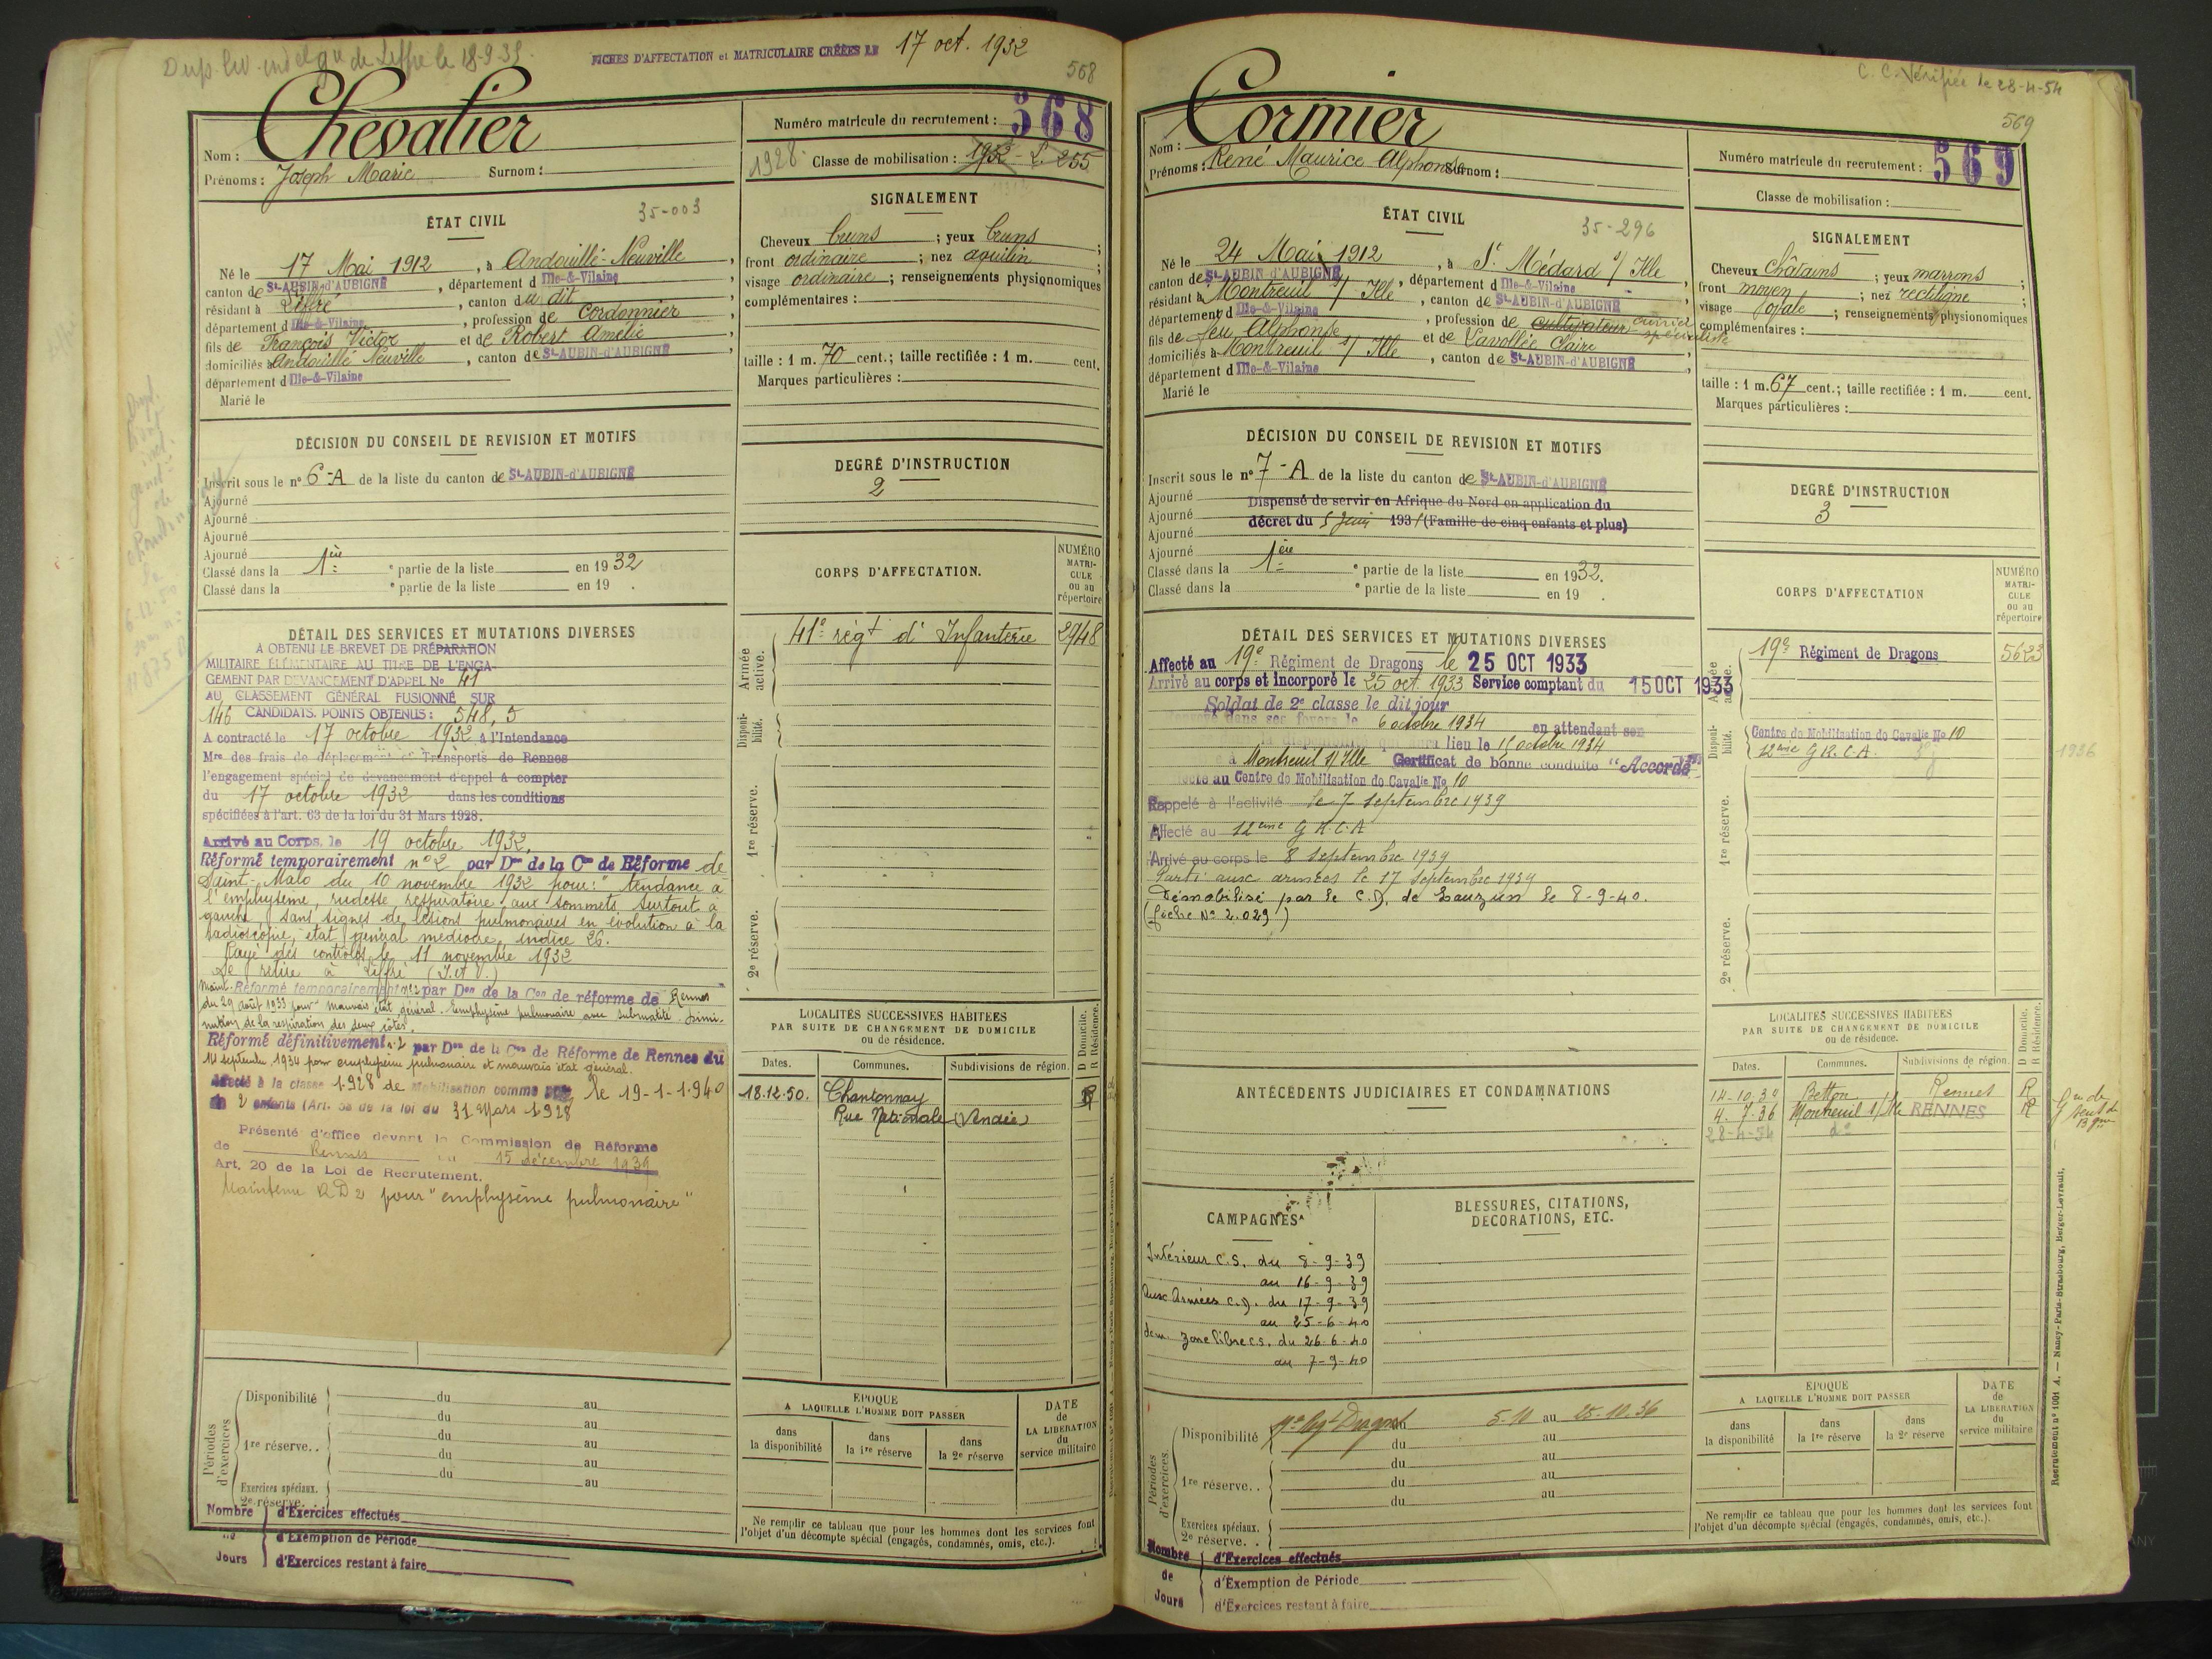 Dup. liv. ind. el. gie de Liffré le 18-9-39.
FICHES D'AFFECTATION et MATRICULAIRE CRÉÉES LE 17 oct. 1932
568
Nom : Chevalier
Prénoms : Joseph Marie Surnom :
Numéro matricule du recrutement : 568
1928. Classe de mobilisation : 1932 - L. 255
ÉTAT CIVIL
35-003
Né le 17 Mai 1912, à Andouillé-Neuville,
canton de St-AUBIN-d'AUBIGNÉ, département d Ille-&-Vilaine
résidant à Liffré, canton du dit,
département d Ille-&-Vilaine, profession de Cordonnier,
fils de François Victor et de Robert Amélie,
domiciliés à Andouillé Neuville, canton de St-AUBIN-d'AUBIGNÉ,
département d Ille-&-Vilaine
Marié le
SIGNALEMENT
Cheveux bruns ; yeux bruns ;
front ordinaire ; nez aquilin ;
visage ordinaire ; renseignements physionomiques
complémentaires :
taille : 1 m. 70 cent.; taille rectifiée : 1 m. cent.
Marques particulières :
DÉCISION DU CONSEIL DE REVISION ET MOTIFS
Inscrit sous le n° 6-A de la liste du canton de St-AUBIN-d'AUBIGNÉ
Ajourné
Ajourné
Ajourné
Ajourné
Classé dans la 1ère e partie de la liste en 1932
Classé dans la e partie de la liste en 19 .
DEGRÉ D'INSTRUCTION
2
CORPS D'AFFECTATION.
NUMÉRO MATRI-CULE ou au répertoire
Armée active.
41e régt d'Infanterie 2948
Disponi-bilité.
1re réserve.
2e réserve.
DÉTAIL DES SERVICES ET MUTATIONS DIVERSES
A OBTENU LE BREVET DE PRÉPARATION
MILITAIRE ÉLÉMENTAIRE AU TITRE DE L'ENGA-
GEMENT PAR DEVANCEMENT D'APPEL No 41
AU CLASSEMENT GÉNÉRAL FUSIONNÉ SUR
146 CANDIDATS. POINTS OBTENUS : 548,5
A contracté le 17 octobre 1932 à l'Intendance
Mre des frais de déplacement et Transports de Rennes
l'engagement spécial de devancement d'appel à compter
du 17 octobre 1932 dans les conditions
spécifiées à l'art. 63 de la loi du 31 Mars 1928.
Arrivé au Corps, le 19 octobre 1932.
Réformé temporairement n°2 par Don de la Con de Réforme de
Saint-Malo du 10 novembre 1932 pour : "tendance à
l'emphysème, rudesse respiratoire aux sommets surtout à
gauche, sans signes de lésions pulmonaires en évolution à la
radioscopie, état général médiocre, indice 26.
Rayé des contrôles le 11 novembre 1932
Se retire à Liffré (I. et V.)
Maint. Réformé temporairement n°2 par Don de la Con de réforme de Rennes
du 29 août 1933 pour "mauvais état général. Emphysème pulmonaire avec submatité. Dimi-
nution de la respiration des deux côtés."
Réformé définitivement n°2 par Don de la Con de Réforme de Rennes du
14 septembre 1934 pour emphysème pulmonaire et mauvais état général.
Affecté à la classe 1928 de Mobilisation comme père le 19-1-1940
de 2 enfants (Art. 58 de la loi du 31 Mars 1928
Présenté d'office devant la Commission de Réforme
de Rennes du 15 décembre 1939
Art. 20 de la Loi de Recrutement.
Maintenu RD2 pour "emphysème pulmonaire"
LOCALITÉS SUCCESSIVES HABITÉES
PAR SUITE DE CHANGEMENT DE DOMICILE
ou de résidence.
D Domicile. R Résidence.
Dates. Communes. Subdivisions de région.
18.12.50. Chantonnay R
Rue Nationale (Vendée)
Périodes d'exercices
Disponibilité du au
du au
1re réserve.. du au
du au
du au
Exercices spéciaux.
2e réserve.
Nombre de Jours
d'Exercices effectués
d'Exemption de Période
d'Exercices restant à faire
ÉPOQUE
A LAQUELLE L'HOMME DOIT PASSER
dans la disponibilité
dans la 1re réserve
dans la 2e réserve
DATE de LA LIBÉRATION du service militaire
Ne remplir ce tableau que pour les hommes dont les services font
l'objet d'un décompte spécial (engagés, condamnés, omis, etc.).
C. C. Vérifiée le 28-4-54
569
Nom : Cormier
Prénoms : René Maurice Alphonse Surnom :
Numéro matricule du recrutement : 569
Classe de mobilisation :
ÉTAT CIVIL
35-296
Né le 24 Mai 1912, à St Médard s/ Ille
canton de St-AUBIN-d'AUBIGNÉ, département d Ille-&-Vilaine
résidant à Montreuil s/ Ille, canton de St-AUBIN-d'AUBIGNÉ
département d Ille-&-Vilaine, profession de cultivateur ouvrier spécialiste
fils de feu Alphonse et de Lavollée Claire
domiciliés à Montreuil s/ Ille, canton de St-AUBIN-d'AUBIGNÉ,
département d Ille-&-Vilaine
Marié le
SIGNALEMENT
Cheveux châtains ; yeux marrons ;
front moyen ; nez rectiligne ;
visage ovale ; renseignements physionomiques
complémentaires :
taille : 1 m. 67 cent.; taille rectifiée : 1 m. cent.
Marques particulières :
DÉCISION DU CONSEIL DE REVISION ET MOTIFS
Inscrit sous le n° 7-A de la liste du canton de St-AUBIN-d'AUBIGNÉ
Ajourné Dispensé de servir en Afrique du Nord en application du
Ajourné décret du 5 Juin 1931 (Famille de cinq enfants et plus)
Ajourné
Ajourné
Classé dans la 1ère e partie de la liste en 1932.
Classé dans la e partie de la liste en 19 .
DEGRÉ D'INSTRUCTION
3
CORPS D'AFFECTATION
NUMÉRO MATRI-CULE ou au répertoire
Armée active.
19e Régiment de Dragons 5623
Disponi-bilité.
Centre de Mobilisation de Cavalie No 10
12ème G.R.C.A 1936
1re réserve.
2e réserve.
DÉTAIL DES SERVICES ET MUTATIONS DIVERSES
Affecté au 19e Régiment de Dragons le 25 OCT 1933
Arrivé au corps et incorporé le 25 oct. 1933 Service comptant du 15 OCT 1933
Soldat de 2e classe le dit jour
dans ses foyers le 6 octobre 1934 en attendant son
lieu le 15 octobre 1934
à Montreuil s/ Ille Certificat de bonne conduite "Accordé"
Affecté au Centre de Mobilisation de Cavalie No 10
Rappelé à l'activité le 7 septembre 1939
Affecté au 12ème G.R.C.A
Arrivé au corps le 8 septembre 1939
Parti aux armées le 17 septembre 1939
Démobilisé par le C.D. de Lauzun le 8-9-40.
(fiche No 2.029)
ANTÉCÉDENTS JUDICIAIRES ET CONDAMNATIONS
CAMPAGNES
Intérieur C.S. du 8-9-39
au 16-9-39
Aux Armées C.D. du 17-9-39
au 25-6-40
dem. zone libre C.S. du 26-6-40
au 7-9-40
BLESSURES, CITATIONS,
DÉCORATIONS, ETC.
LOCALITÉS SUCCESSIVES HABITÉES
PAR SUITE DE CHANGEMENT DE DOMICILE
ou de résidence.
D Domicile. R Résidence.
Dates. Communes. Subdivisions de région.
14-10-34 Betton Rennes R
4-7-36 Montreuil s/ Ille RENNES R
28-4-54 do
Périodes d'exercices.
Disponibilité 19e Régt Dragons du 5-10 au 25-10.36
du au
1re réserve.. du au
du au
du au
Exercices spéciaux.
2e réserve. .
Nombre de Jours
d'Exercices effectués
d'Exemption de Période
d'Exercices restant à faire
ÉPOQUE
A LAQUELLE L'HOMME DOIT PASSER
dans la disponibilité
dans la 1re réserve
dans la 2e réserve
DATE de LA LIBÉRATION du service militaire
Ne remplir ce tableau que pour les hommes dont les services font
l'objet d'un décompte spécial (engagés, condamnés, omis, etc.).
Recrutement n° 1001 A. — Nancy-Paris-Strasbourg, Berger-Levrault.